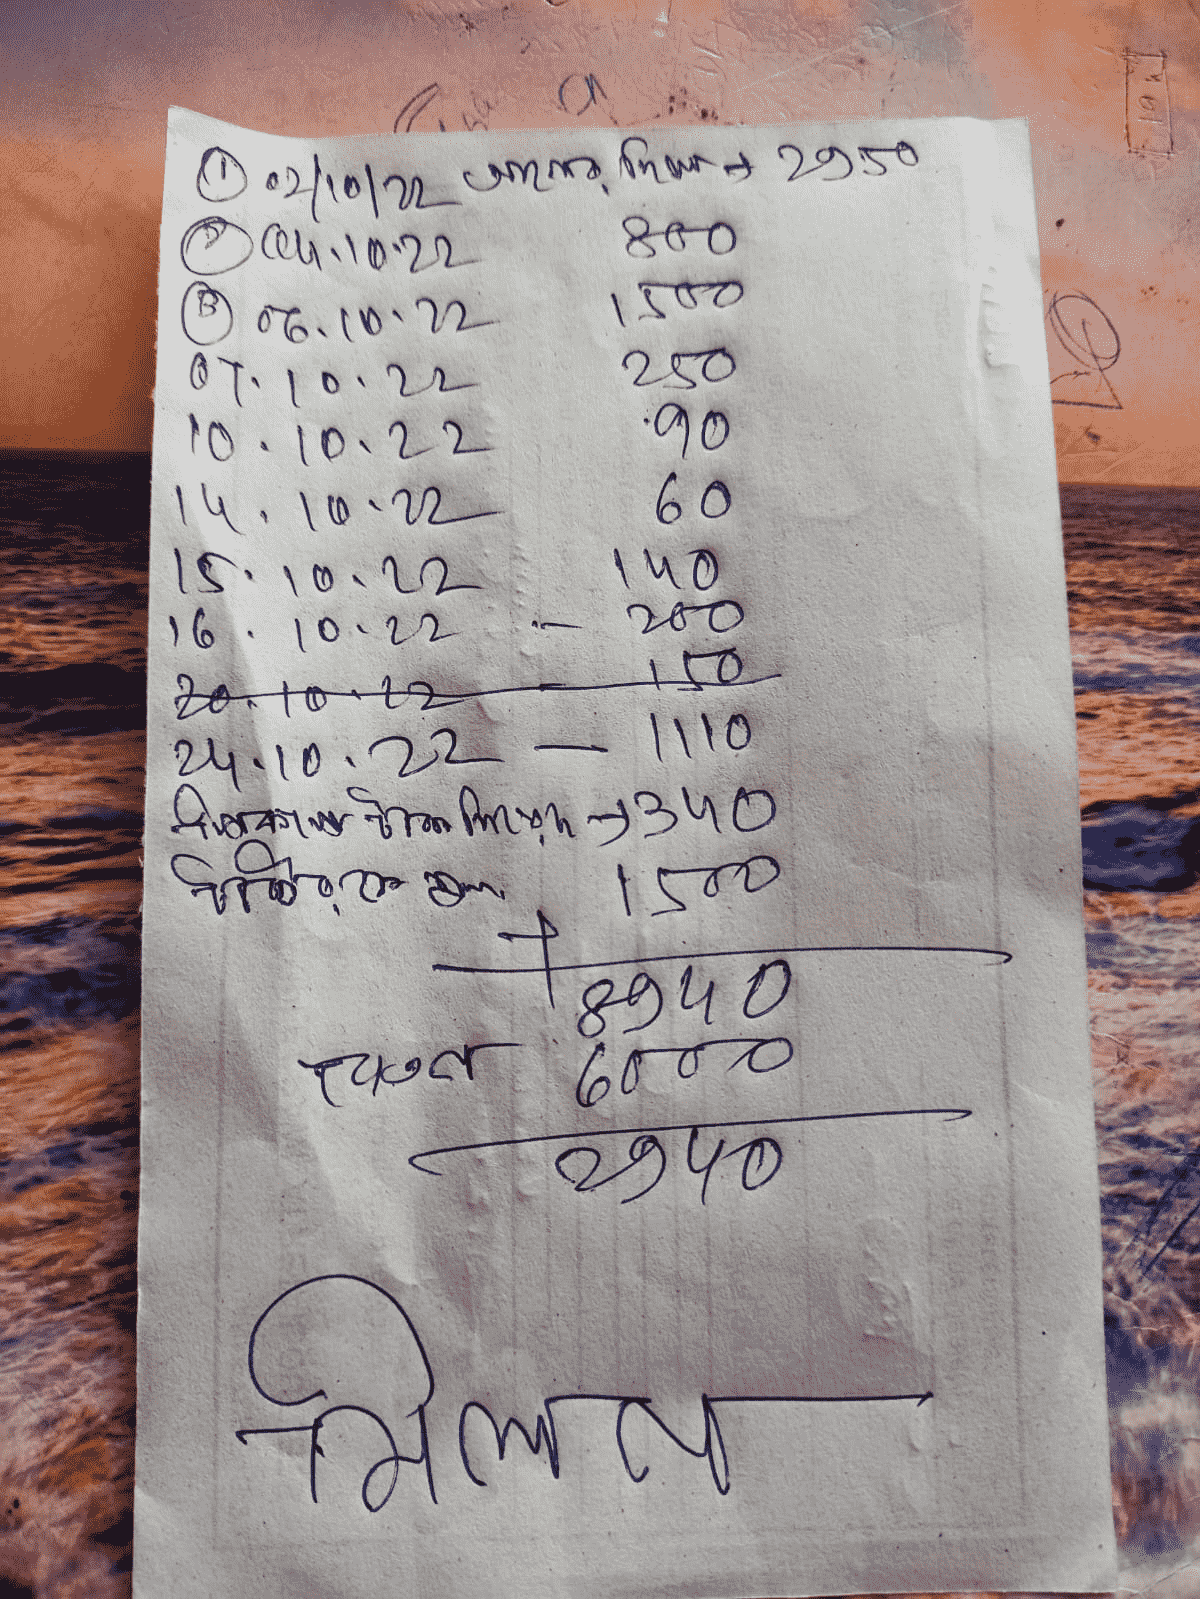 ① 02/10/22 → 2950
② 04.10.22 800
③ 06.10.22 1500
07.10.22 250
10.10.22 90
14.10.22 60
15.10.22 140
16.10.22 — 200
20.10.22 — 150
24.10.22 — 1110
টাকা → 340
1500
+
8940
বেতন 6000
2940
মিলন